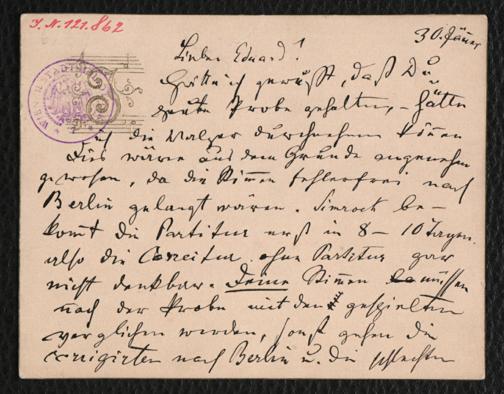 J. N. 121.862
30. Jänner
Lieber Eduard!
Hätte ich gewußt, daß Du
heute Probe gehalten, – hätte
ich die Walzer durchnehmen können
Dies wäre aus dem Grunde angenehm
gewesen, da die Stimmen fehlerfrei nach
Berlin gelangt wären. Simrock be-
komt die Partitur erst in 8 – 10 Tagen.
also die Correctur ohne Partitur gar
nicht denkbar. Deine Stimen müssen
nach der Probe mit den gespielten
verglichen werden, sonst gehen die
corrigirten nach Berlin u. die schlechten